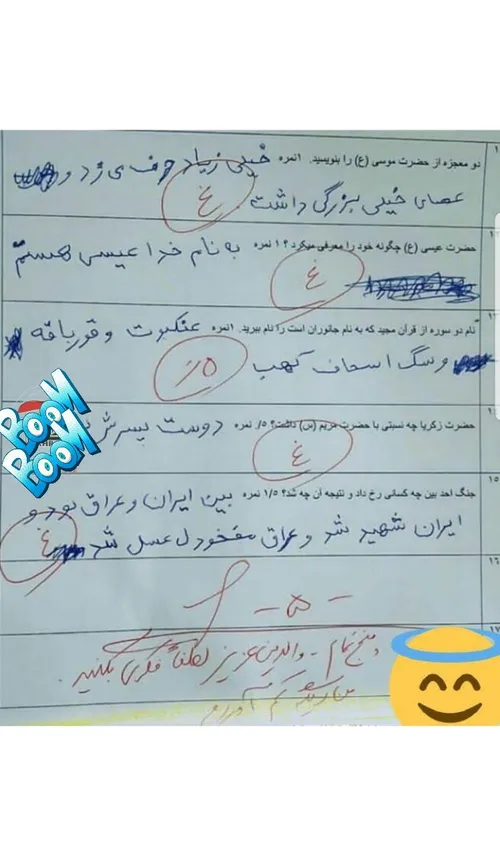 دو معجزه از حضرت موسی (ع) را بنویسید. ۱نمره خیلی زیاد حرف ی زد و
عصای خیلی بزرگی داشت. غ
حضرت عیسی (ع) چگونه خود را معرفی میکرد؟ ۱ نمره به نام خدا عیسی هستم
غ
نام دو سوره از قرآن مجید که به نام جانوران است را نام ببرید. ۱نمره عنکبوت و قورباقه
و سگ اسحاف کهب
BOOM
BOOM
حضرت زکریا چه نسبتی با حضرت مریم (س) داشت؟ ۵/. نمره دوست پسرش
غ
۱۵
جنگ احد بین چه کسانی رخ داد و نتیجه آن چه شد؟ ۱/۵ نمره بین ایران و عراق بود و
ایران شهید شد و عراق مفخود ل عسل شد غ
۱۶
- ۵ -
۱۷
پنج تمام - والدین عزیز لطفاً فکری بکنید.